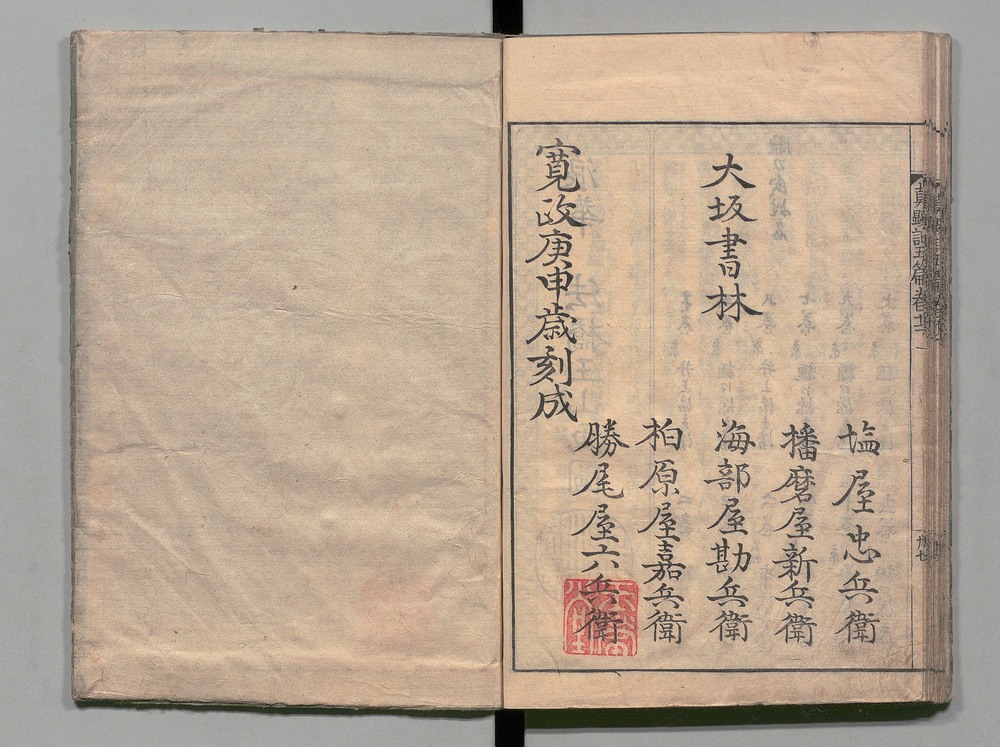 塩屋忠兵衛
播磨屋新兵衛
大坂書林
海部屋勘兵衛
柏原屋嘉兵衛
勝尾屋六兵衛
寛政庚申歳刻成